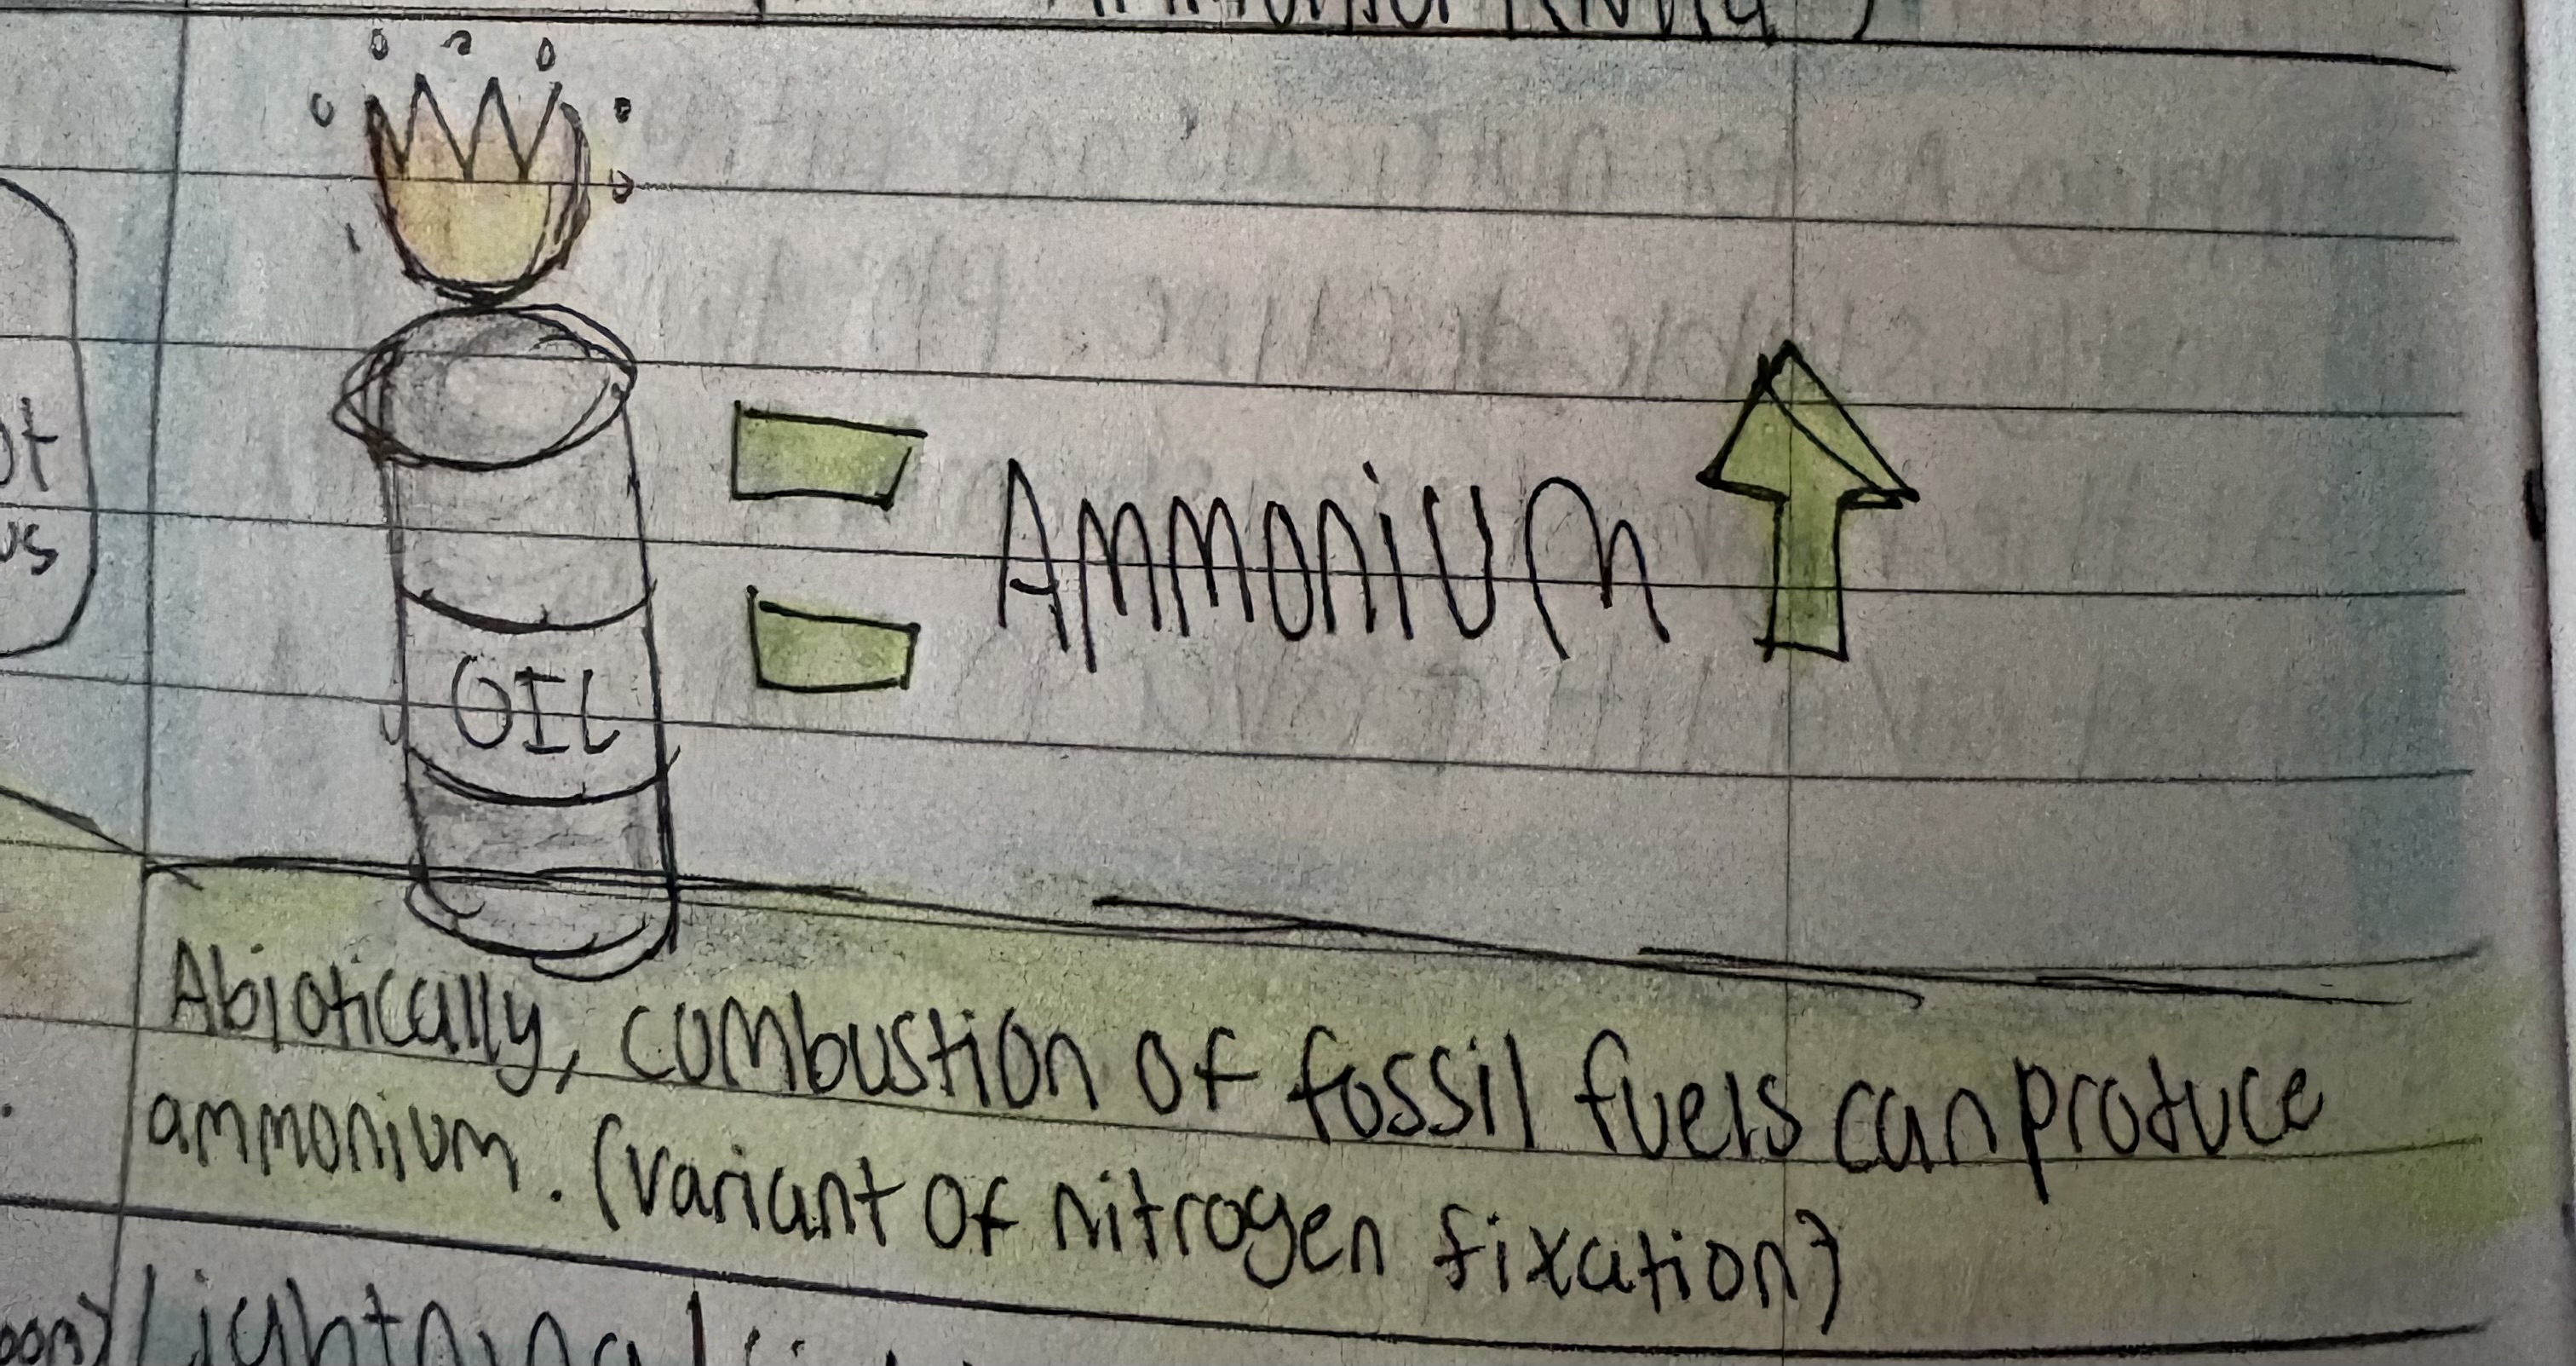 OIL
AMMONIUM
Abiotically, combustion of fossil fuels can produce
ammonium. (Variant of nitrogen fixation)
Lightning